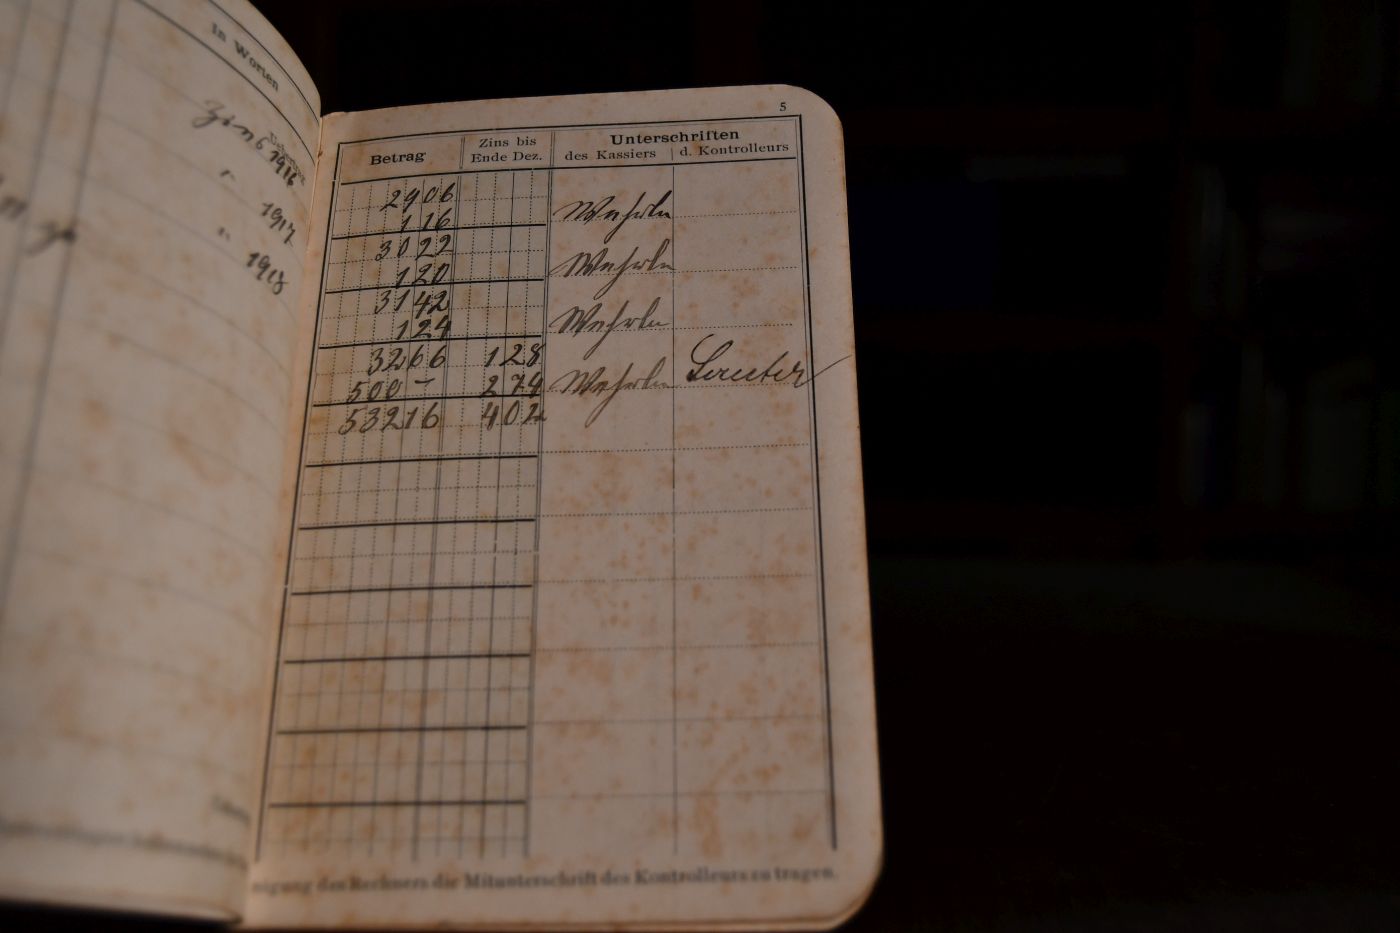 In Worten
Zins 1916
" 1917
" 1918
5
Betrag
Zins bis
Ende Dez.
Unterschriften
des Kassiers
d. Kontrolleurs
2906
116 Wehrle
3022
120 Wehrle
3142
124 Wehrle
3266 128
500 — 274 Wehrle Sauter
53216 402
nigung des Rechners die Mitunterschrift des Kontrolleurs zu tragen.